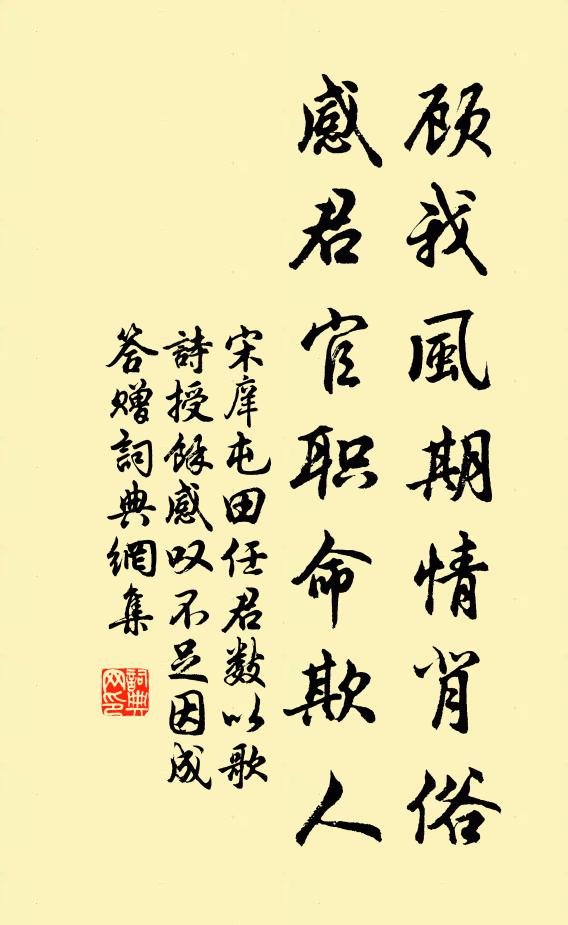 顾我風期情肖俗
感君官职命欺人
宋庠屯田任君数以歌
詩授餘感叹不足因成
答赠詞典網集
詞典
网印